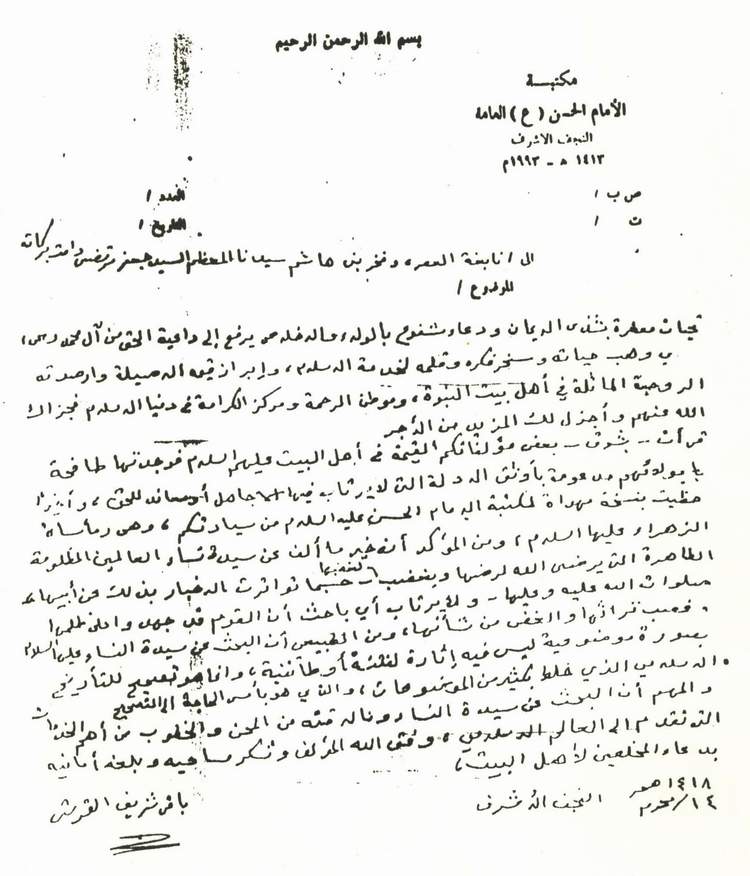 بسم الله الرحمن الرحيم
مكتبة
الأمام الحسن (ع) العامة
النجف الاشرف
١٤١٣ هـ - ١٩٩٣م
ص ب /
العدد /
ت /
التاريخ /
الى نابغة العصر، وفخر بني هاشم سيدنا المعظم السيد جعفر مرتضى دامت بركاته
الموضوع /
تحيات معطرة بشذى الايمان ودعاء مشفوع بالولاء والاخلاص يرفع إلى داعية الحق من آل محمد (ص)،
وهب حياته وسخر فكره وقلمه لخدمة الاسلام، وإبراز قيمه الاصيلة وارصدته
الروحية الماثلة في أهل بيت النبوة، وموطن الرحمة ومركز الكرامة في دنيا الاسلام فجزاك
الله عنهم وأجزل لك المزيد من الأجر
قرأت - بشوق - بعض مؤلفاتكم القيمة في أهل البيت عليهم السلام فوجدتها طافحة
بالولاء لهم مدعومة بأوثق الادلة التي لا يرتاب فيها الا جاهل أو معاند للحق، وأخيرا
حظيت بنسخة مهداة لمكتبة الامام الحسن عليه السلام من سيادتكم، وهي (مأساة
الزهراء عليها السلام)، ومن المؤكد أنه خير ما ألف عن سيدة نساء العالمين المظلومة
الطاهرة التي يرضى الله لرضاها ويغضب لغضبها - حسبما تواترت الاخبار بذلك عن أبيها
صلوات الله عليه وعليها - ولا يرتاب أي باحث أن القوم قد جهدوا على ظلمها
وغصب تراثها والغض من شأنها، ومن الطبيعي أن البحث عن سيدة النساء عليها السلام
بصورة موضوعية ليس فيه إثارة لفتنة أو طائفية، وانما هو تصحيح للتأريخ
الاسلامي الذي خلط بكثير من الموضوعات، والذي هو بأمس الحاجة الى التصحيح
والمهم أن البحث عن سيدة النساء وما لاقته من المحن والخطوب من أهم الخدمات
التي تقدم الى العالم الاسلامي، وفق الله المؤلف وشكر مساعيه وبلغه أمانيه
بدعاء المخلصين لأهل البيت،
١٤١٨ هـ
١٤/ محرم
النجف الأشرف
باقر شريف القرشي